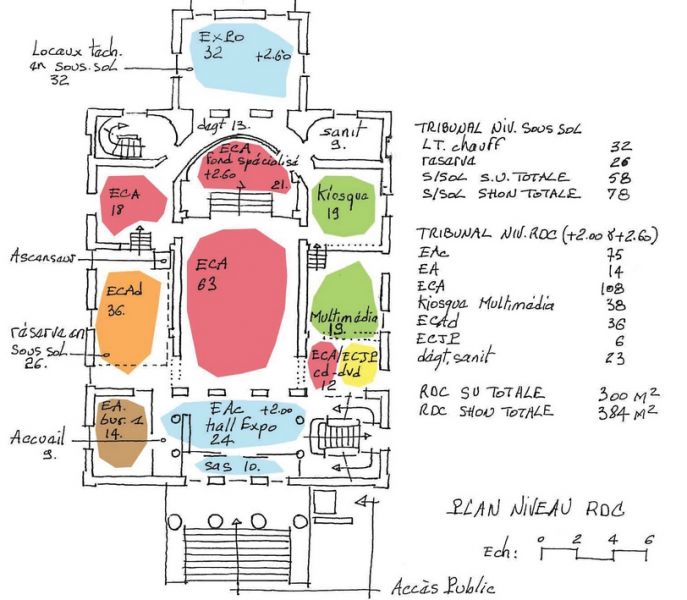 Locaux tech.
en sous.sol
32
EXPO
32 +2.60
dégt 13.
sanit
9.
ECA
fond spécialisé
+2.60
21.
ECA
18
Kiosque
19
Ascenseur
ECA
63
ECAd
36.
Multimédia
19.
réserve en
sous sol
26.
ECA/ECJP
cd-dvd
12
EA.
bur. 1
14.
EAc +2.00
hall Expo
24
Accueil
9.
sas 10.
Accès Public
TRIBUNAL NIV. SOUS SOL
LT. chauff 32
reserve 26
S/SOL S.U. TOTALE 58
S/SOL SHON TOTALE 78
TRIBUNAL NIV. RDC (+2.00 & +2.60)
EAc 75
EA 14
ECA 108
Kiosque Multimédia 38
ECAd 36
ECJP 6
dégt, sanit 23
RDC SU TOTALE 300 M²
RDC SHON TOTALE 384 M²
PLAN NIVEAU RDC
Ech: 0 2 4 6